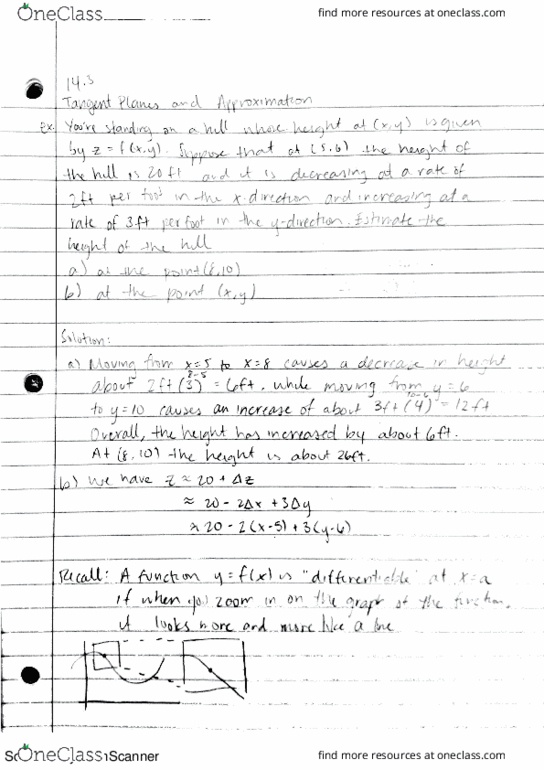 OneClass
find more resources at oneclass.com
14.3
Tangent Planes and Approximation
ex. You're standing on a hill whose height at (x,y) is given
by z = f(x,y). Suppose that at (5,6) the height of
the hill is 20 ft and it is decreasing at a rate of
2ft per foot in the x-direction and increasing at a
rate of 3ft per foot in the y-direction. Estimate the
height of the hill
a) at the point (8,10)
b) at the point (x,y)
Solution:
a) Moving from x=5 to x=8 causes a decrease in height
8-5
about 2ft (3) = 6ft, while moving from y=6
10-6
to y=10 causes an increase of about 3ft (4) = 12ft
Overall, the height has increased by about 6ft.
At (8,10) the height is about 26ft.
b) We have z ≈ 20 + Δz
≈ 20 - 2Δx + 3Δy
≈ 20 - 2(x-5) + 3(y-6)
Recall: A function y=f(x) is "differentiable" at x=a
if when you zoom in on the graph of the function,
it looks more and more like a line
OneClass
Scanner
find more resources at oneclass.com